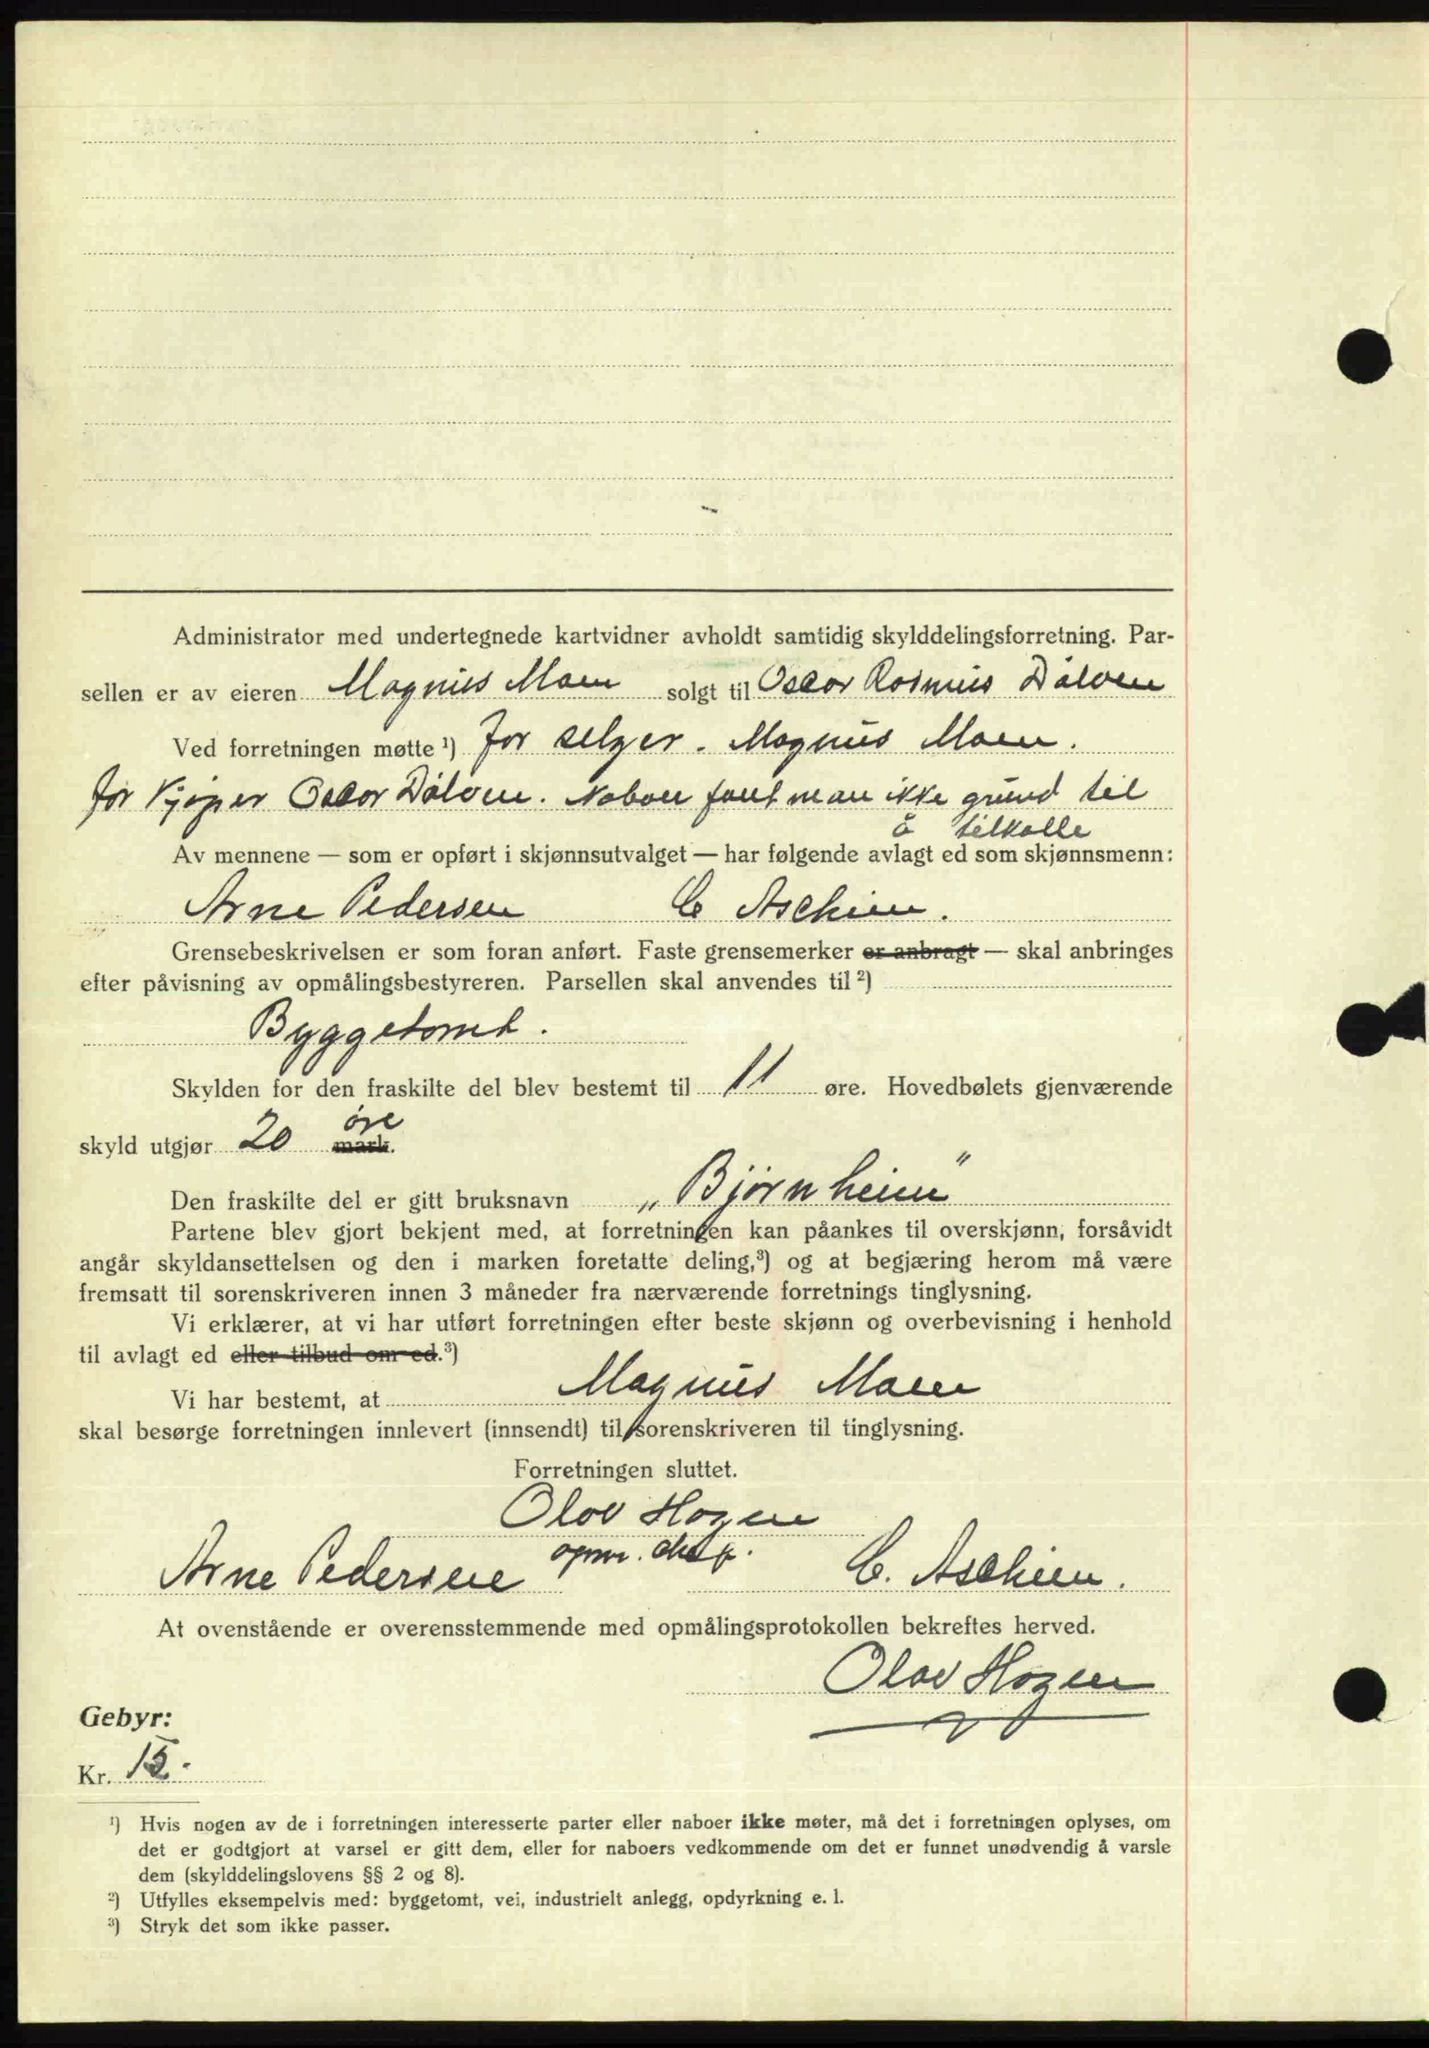 Administrator med undertegnede kartvidner avholdt samtidig skylddelingsforretning. Par-
sellen er av eieren Magnus Moen solgt til Oscar Rasmus Dalven
Ved forretningen møtte ¹) for selger. Magnus Moen.
for kjøper Oscar Dalven. Naboer fant man ikke grund til
å tilkalle
Av mennene — som er opført i skjønnsutvalget — har følgende avlagt ed som skjønnsmenn:
Arne Pedersen C Aschim.
Grensebeskrivelsen er som foran anført. Faste grensemerker er anbragt — skal anbringes
efter påvisning av opmålingsbestyreren. Parsellen skal anvendes til ²)
Byggetomt.
Skylden for den fraskilte del blev bestemt til 11 øre. Hovedbølets gjenværende
øre
skyld utgjør 20 mark.
Den fraskilte del er gitt bruksnavn „Bjørnheim"
Partene blev gjort bekjent med, at forretningen kan påankes til overskjønn, forsåvidt
angår skyldansettelsen og den i marken foretatte deling,³) og at begjæring herom må være
fremsatt til sorenskriveren innen 3 måneder fra nærværende forretnings tinglysning.
Vi erklærer, at vi har utført forretningen efter beste skjønn og overbevisning i henhold
til avlagt ed eller tilbud om ed.³)
Vi har bestemt, at Magnus Moen
skal besørge forretningen innlevert (innsendt) til sorenskriveren til tinglysning.
Forretningen sluttet.
Olav Hagen
opm.
Arne Pedersen C. Aschim.
At ovenstående er overensstemmende med opmålingsprotokollen bekreftes herved.
Olav Hagen
Gebyr:
Kr. 15.-
¹) Hvis nogen av de i forretningen interesserte parter eller naboer ikke møter, må det i forretningen oplyses, om
det er godtgjort at varsel er gitt dem, eller for naboers vedkommende om det er funnet unødvendig å varsle
dem (skylddelingslovens §§ 2 og 8).
²) Utfylles eksempelvis med: byggetomt, vei, industrielt anlegg, opdyrkning e. l.
³) Stryk det som ikke passer.